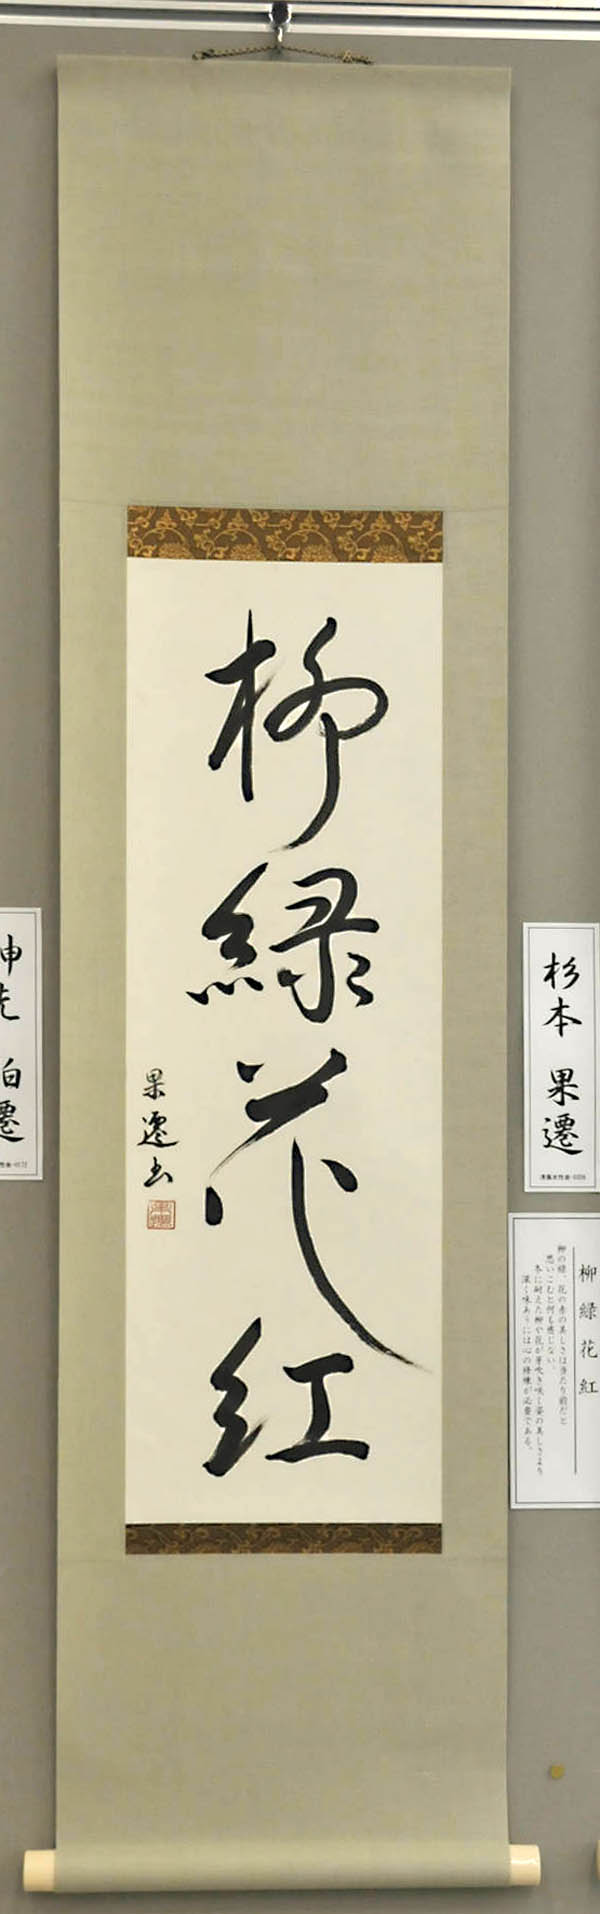 柳緑花紅
果遷書
杉本 果遷
柳緑花紅
柳の緑、花の赤の美しさは当たり前だと
思いこむと何も感じない。
冬に耐えた柳や花が芽吹き咲く姿の美しさより
深く味あうには心の修練が必要である。